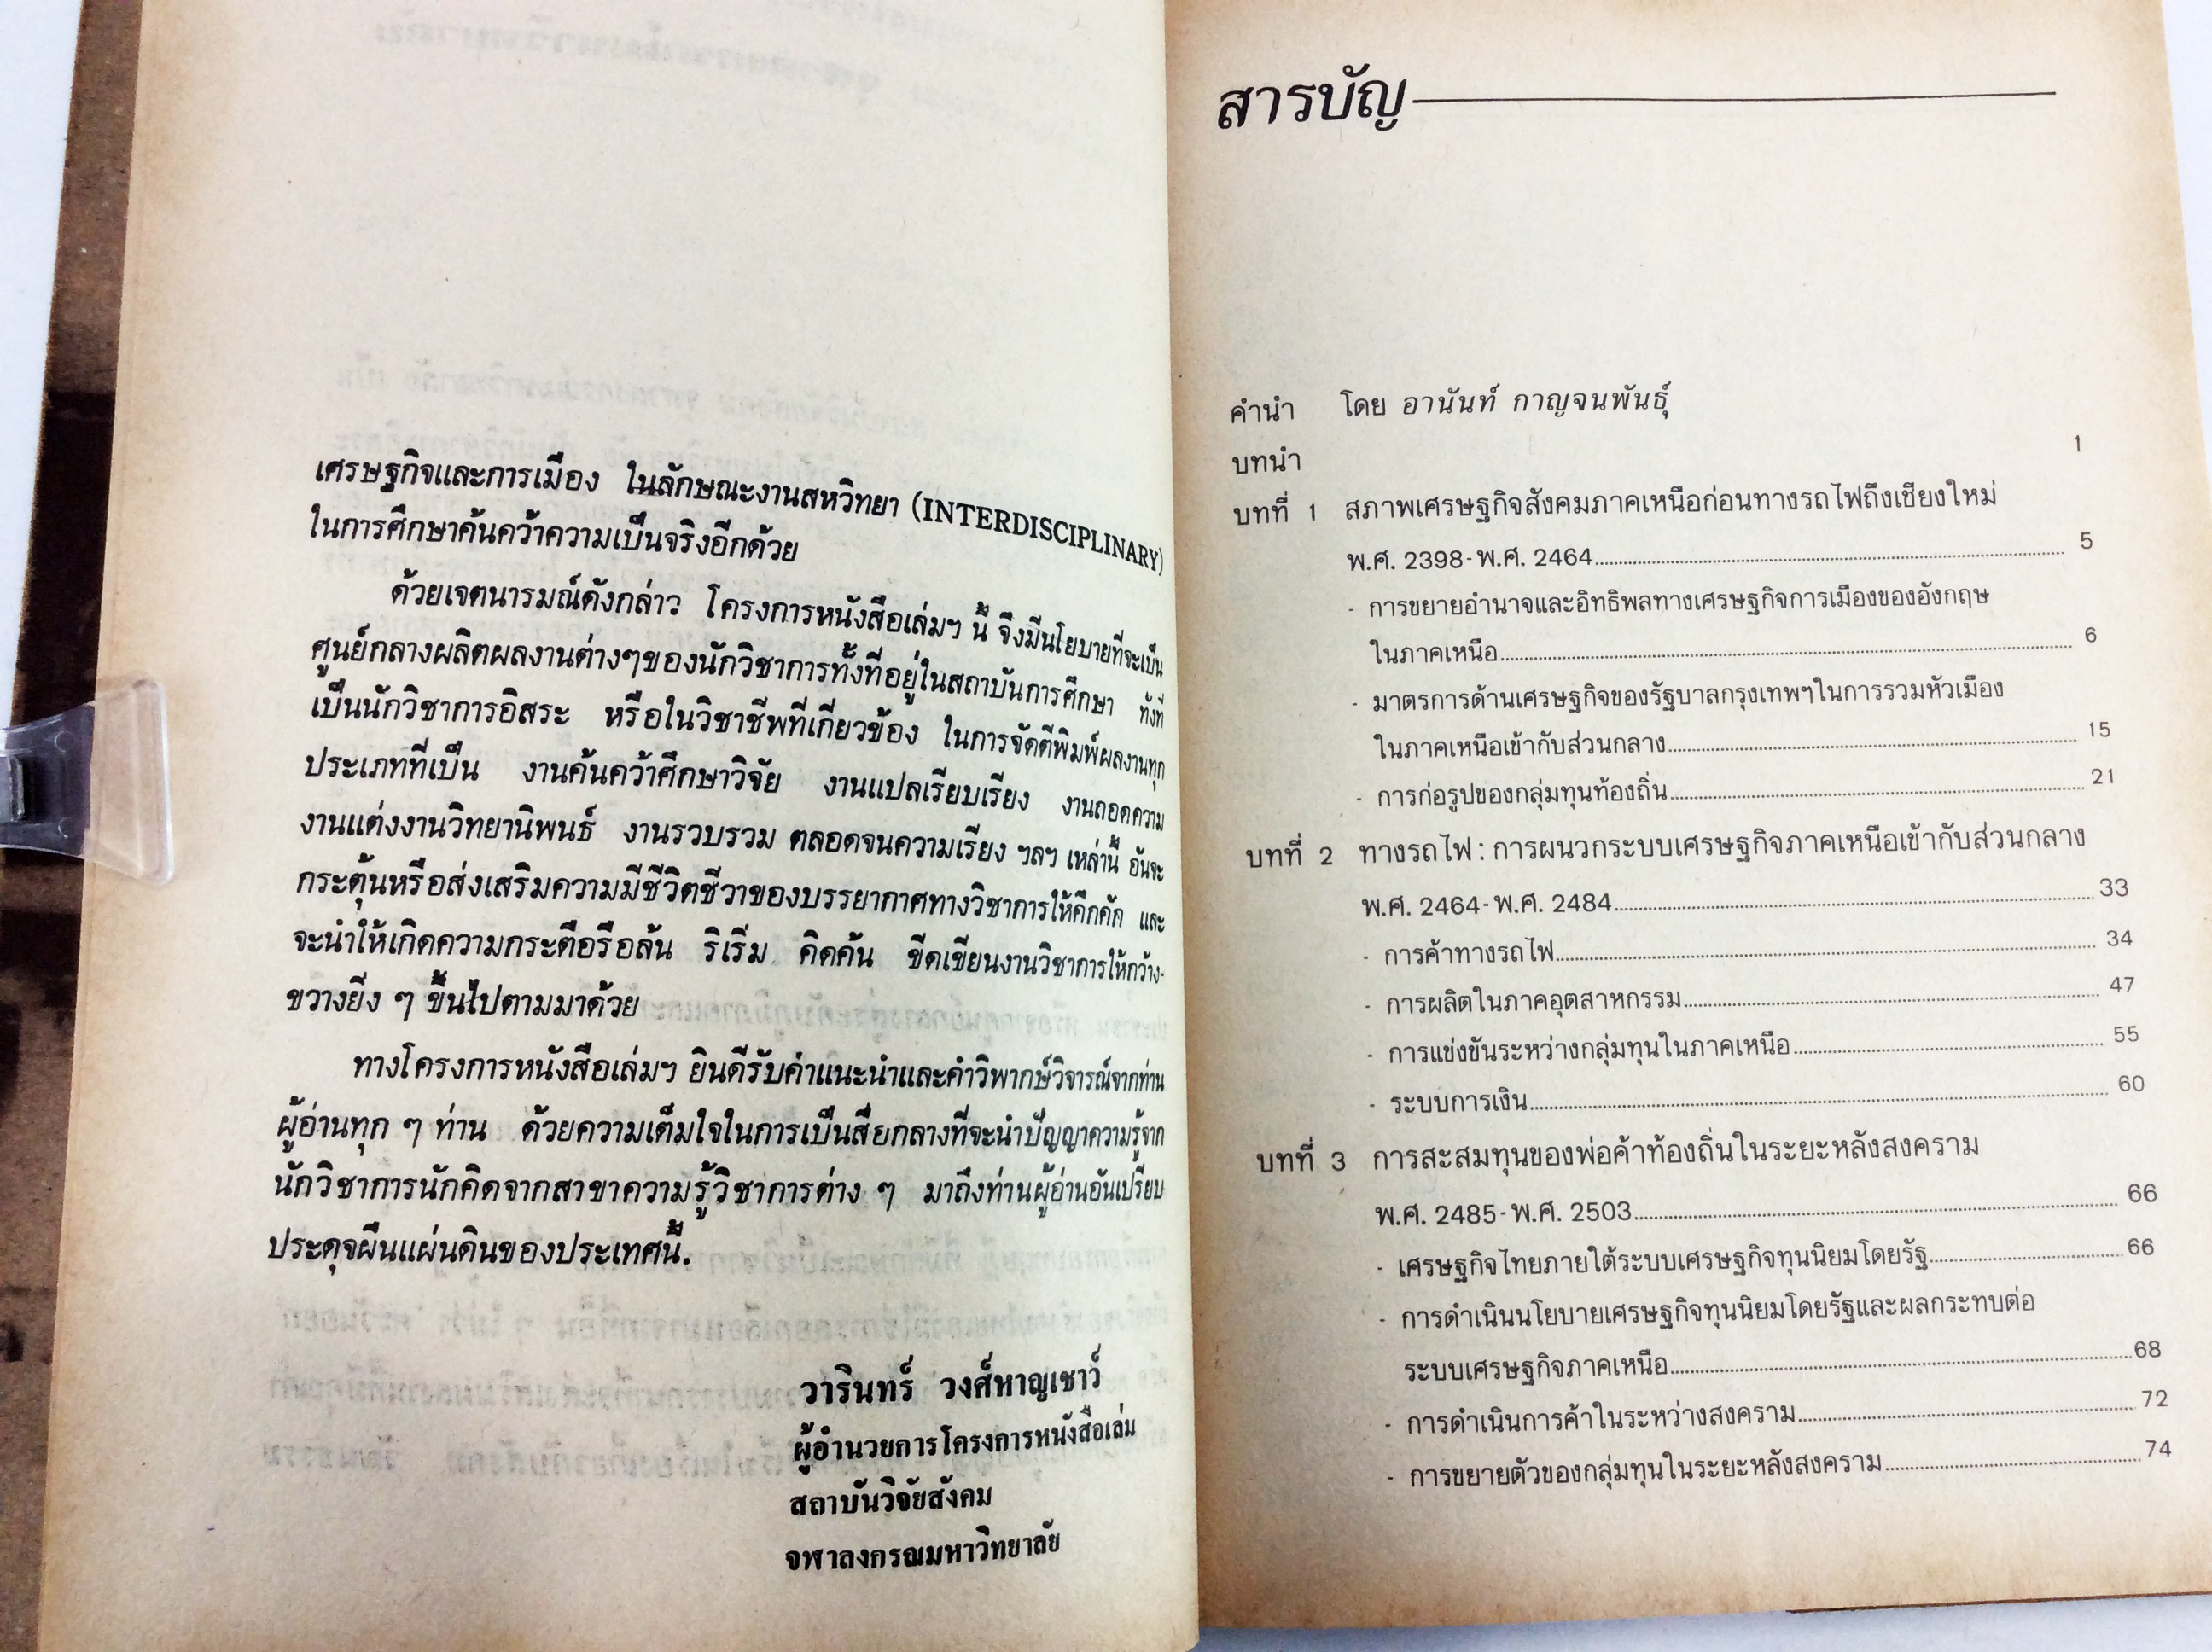 เศรษฐกิจและการเมือง ในลักษณะงานสหวิทยา (INTERDISCIPLINARY)
ในการศึกษาค้นคว้าความเป็นจริงอีกด้วย
ด้วยเจตนารมณ์ดังกล่าว โครงการหนังสือเล่มฯ นี้ จึงมีนโยบายที่จะเป็น
ศูนย์กลางผลิตผลงานต่างๆของนักวิชาการทั้งที่อยู่ในสถาบันการศึกษา ทั้งที่
เป็นนักวิชาการอิสระ หรือในวิชาชีพที่เกี่ยวข้อง ในการจัดตีพิมพ์ผลงานทุก
ประเภทที่เป็น งานค้นคว้าศึกษาวิจัย งานแปลเรียบเรียง งานถอดความ
งานแต่งงานวิทยานิพนธ์ งานรวบรวม ตลอดจนความเรียง ฯลฯ เหล่านี้ อันจะ
กระตุ้นหรือส่งเสริมความมีชีวิตชีวาของบรรยากาศทางวิชาการให้คึกคัก และ
จะนำให้เกิดความกระตือรือล้น ริเริ่ม คิดค้น ขีดเขียนงานวิชาการให้กว้าง-
ขวางยิ่ง ๆ ขึ้นไปตามมาด้วย
ทางโครงการหนังสือเล่มฯ ยินดีรับคำแนะนำและคำวิพากษ์วิจารณ์จากท่าน
ผู้อ่านทุก ๆ ท่าน ด้วยความเต็มใจในการเป็นสื่อกลางที่จะนำปัญญาความรู้จาก
นักวิชาการนักคิดจากสาขาความรู้วิชาการต่าง ๆ มาถึงท่านผู้อ่านอันเปรียบ
ประดุจผืนแผ่นดินของประเทศนี้.
วารินทร์ วงศ์หาญเชาว์
ผู้อำนวยการโครงการหนังสือเล่ม
สถาบันวิจัยสังคม
จุฬาลงกรณมหาวิทยาลัย
สารบัญ
คำนำ โดย อานันท์ กาญจนพันธุ์
บทนำ 1
บทที่ 1 สภาพเศรษฐกิจสังคมภาคเหนือก่อนทางรถไฟถึงเชียงใหม่
พ.ศ. 2398-พ.ศ. 2464 5
- การขยายอำนาจและอิทธิพลทางเศรษฐกิจการเมืองของอังกฤษ
ในภาคเหนือ 6
- มาตรการด้านเศรษฐกิจของรัฐบาลกรุงเทพฯในการรวมหัวเมือง
ในภาคเหนือเข้ากับส่วนกลาง 15
- การก่อรูปของกลุ่มทุนท้องถิ่น 21
บทที่ 2 ทางรถไฟ : การผนวกระบบเศรษฐกิจภาคเหนือเข้ากับส่วนกลาง
พ.ศ. 2464-พ.ศ. 2484 33
- การค้าทางรถไฟ 34
- การผลิตในภาคอุตสาหกรรม 47
- การแข่งขันระหว่างกลุ่มทุนในภาคเหนือ 55
- ระบบการเงิน 60
บทที่ 3 การสะสมทุนของพ่อค้าท้องถิ่นในระยะหลังสงคราม
พ.ศ. 2485-พ.ศ. 2503 66
- เศรษฐกิจไทยภายใต้ระบบเศรษฐกิจทุนนิยมโดยรัฐ 66
- การดำเนินนโยบายเศรษฐกิจทุนนิยมโดยรัฐและผลกระทบต่อ
ระบบเศรษฐกิจภาคเหนือ 68
- การดำเนินการค้าในระหว่างสงคราม 72
- การขยายตัวของกลุ่มทุนในระยะหลังสงคราม 74